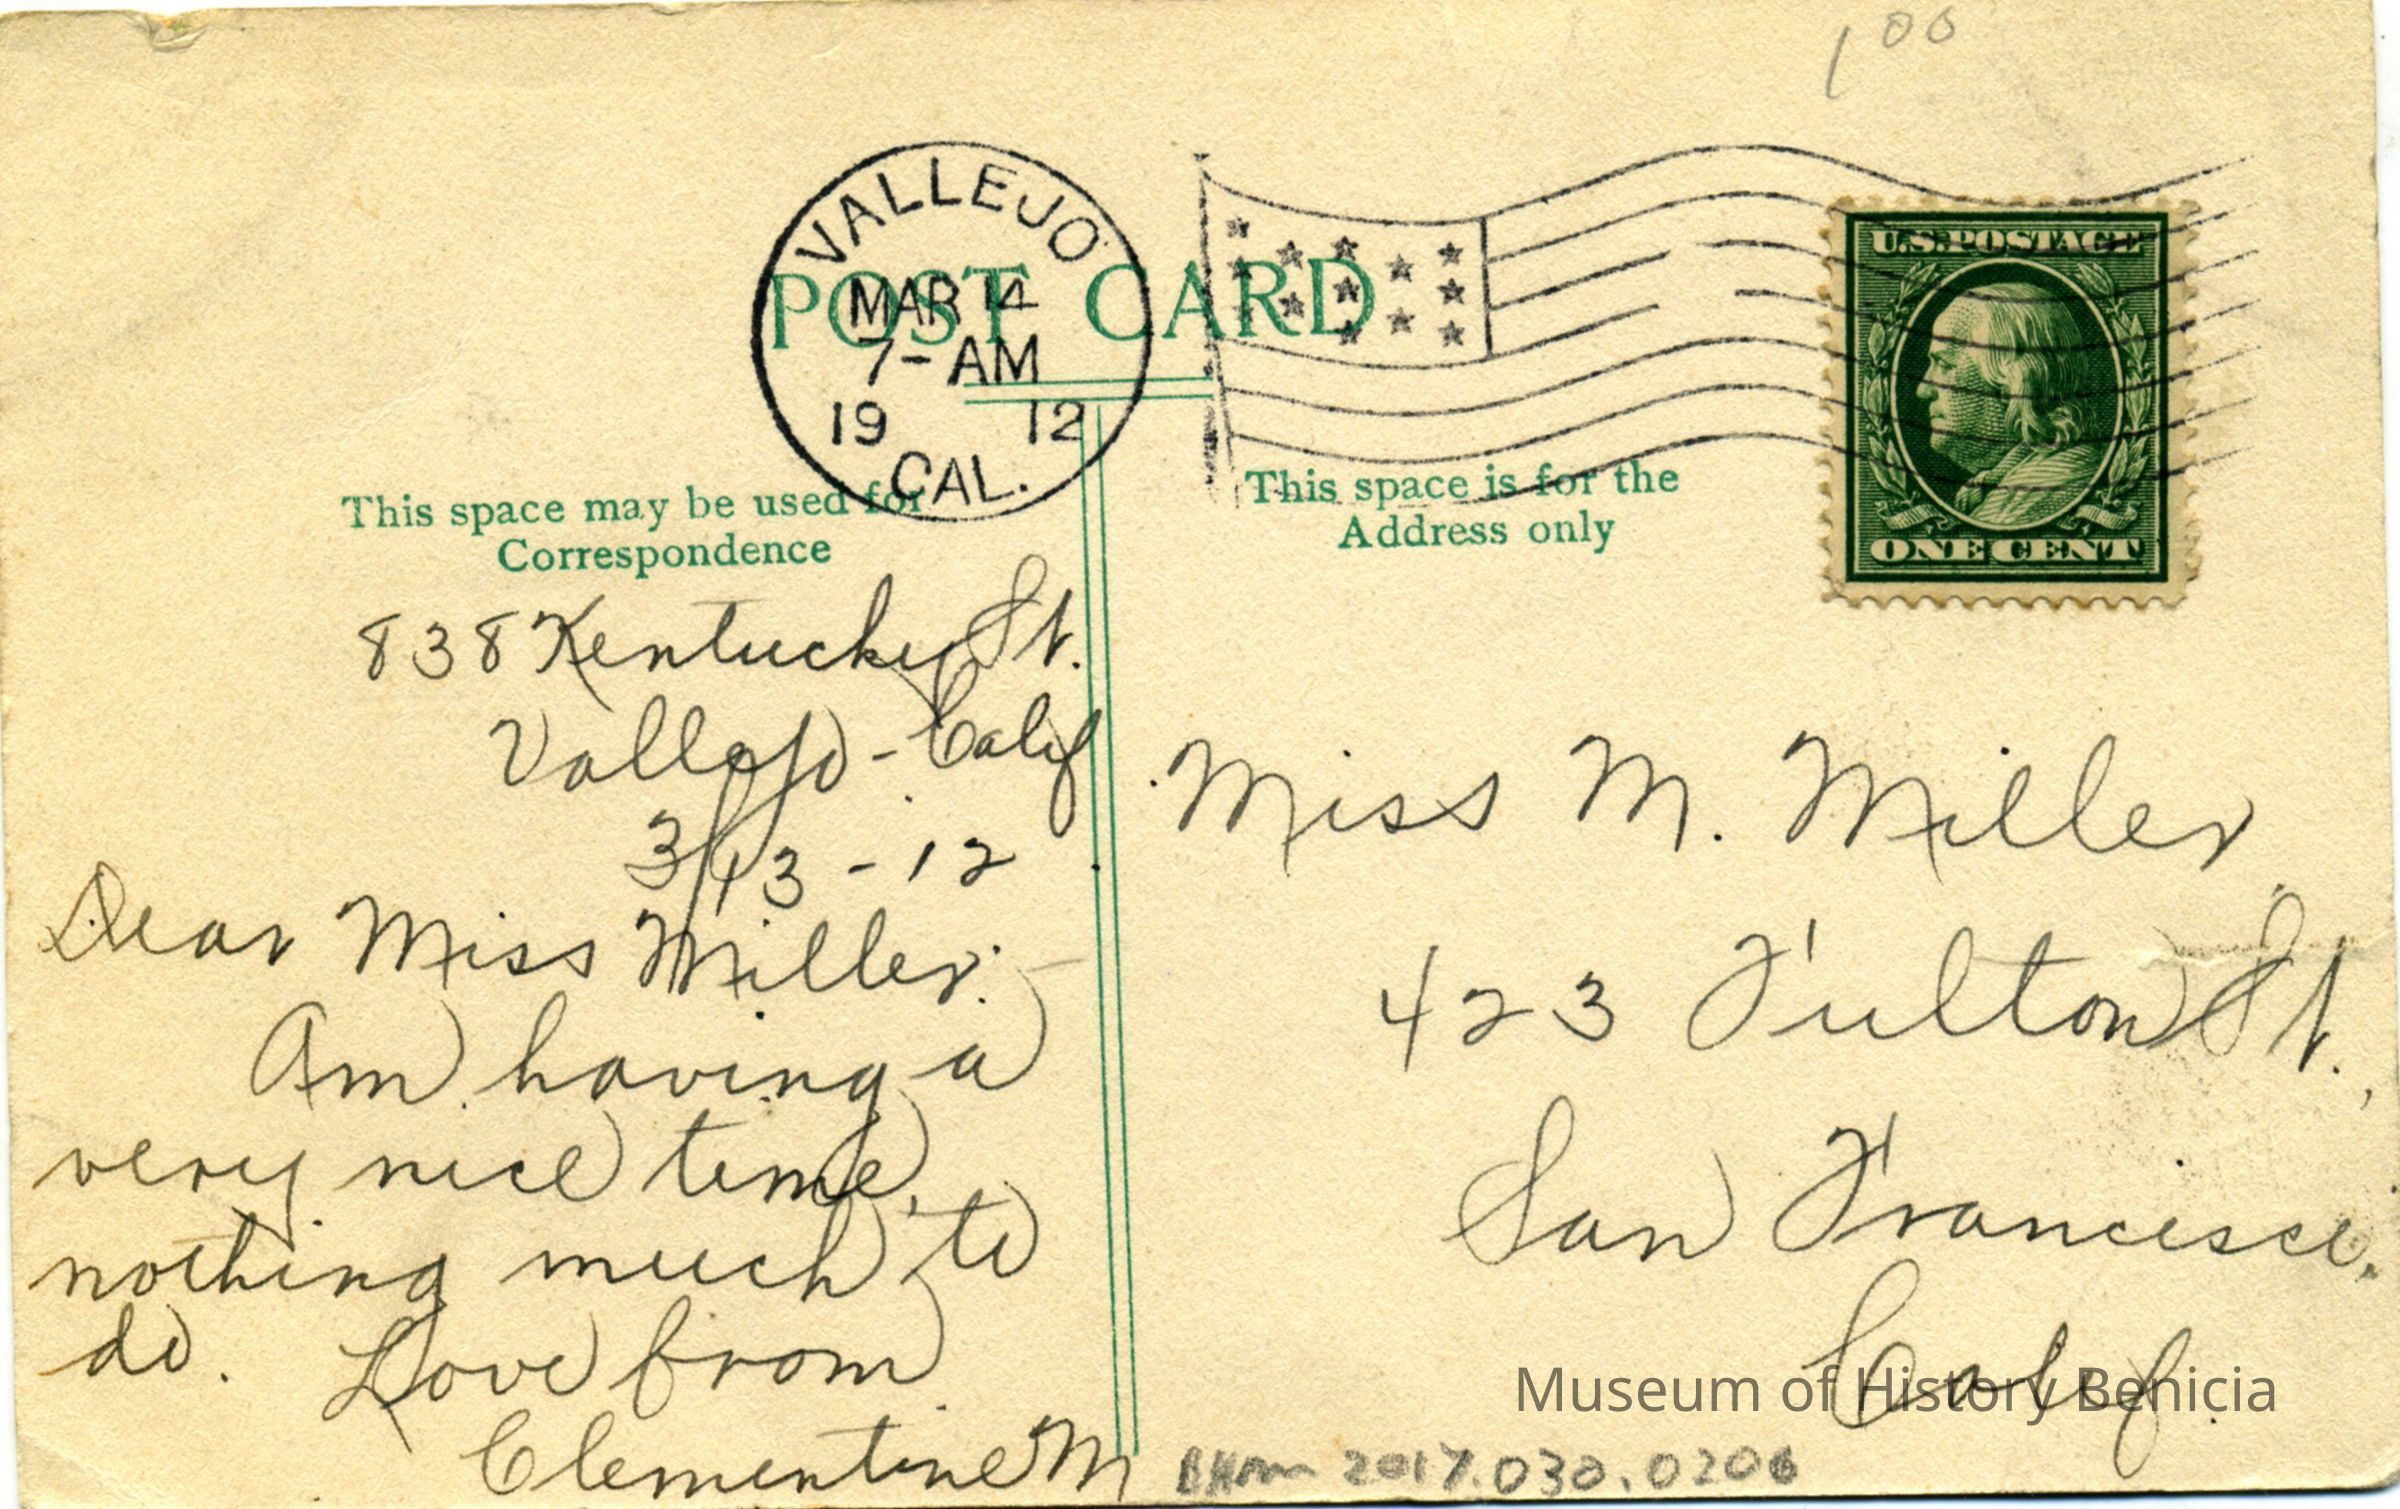 1 00
VALLEJO
MAR 14
7-AM
19 12
CAL.
POST CARD
U.S. POSTAGE
ONE CENT
This space may be used for
Correspondence
838 Kentucky St.
Vallejo - Calif
3/13-12
Dear Miss Miller:-
Am having a
very nice time,
nothing much to
do. Love from
Clementine M
This space is for the
Address only
Miss M. Miller
423 Fulton St.,
San Francisco.
Calif.
Museum of History Benicia
BHM 2017.030.0206